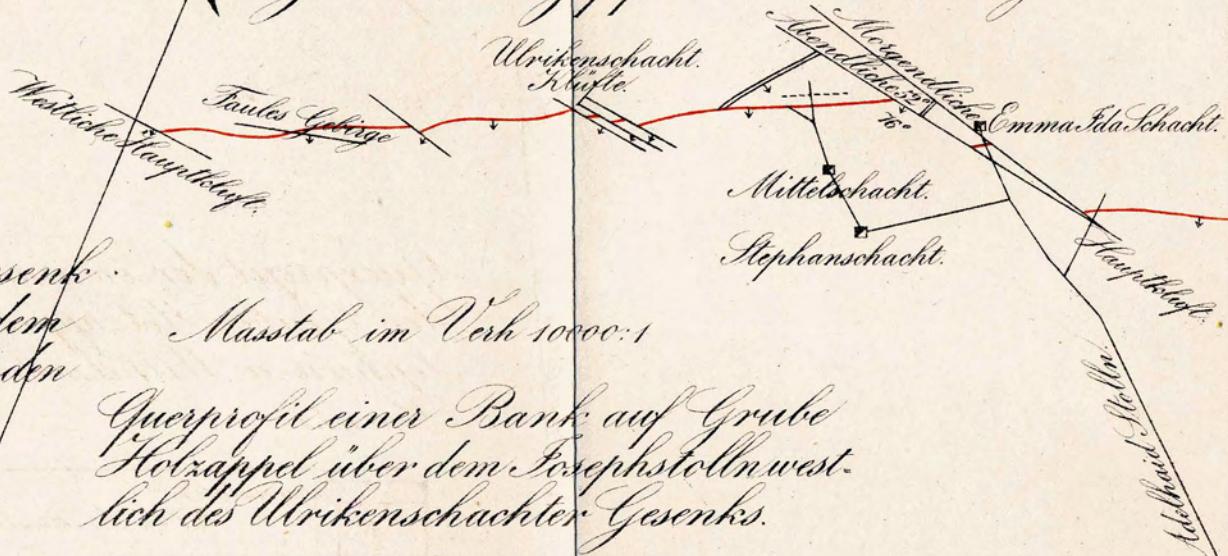 Ulrikenschacht.
Klüfte.
Westliche Hauptkluft.
Faules Gebirge
Abendliche 52°
Morgendliche
76°
Emma Ida Schacht.
Mittelschacht.
Stephanschacht.
Hauptkluft.
Adelhaid Stolln.
senk
dem
den
Masstab im Verh 10000:1
Querprofil einer Bank auf Grube
Holzappel über dem Josephstolln west-
lich des Ulrikenschachter Gesenks.